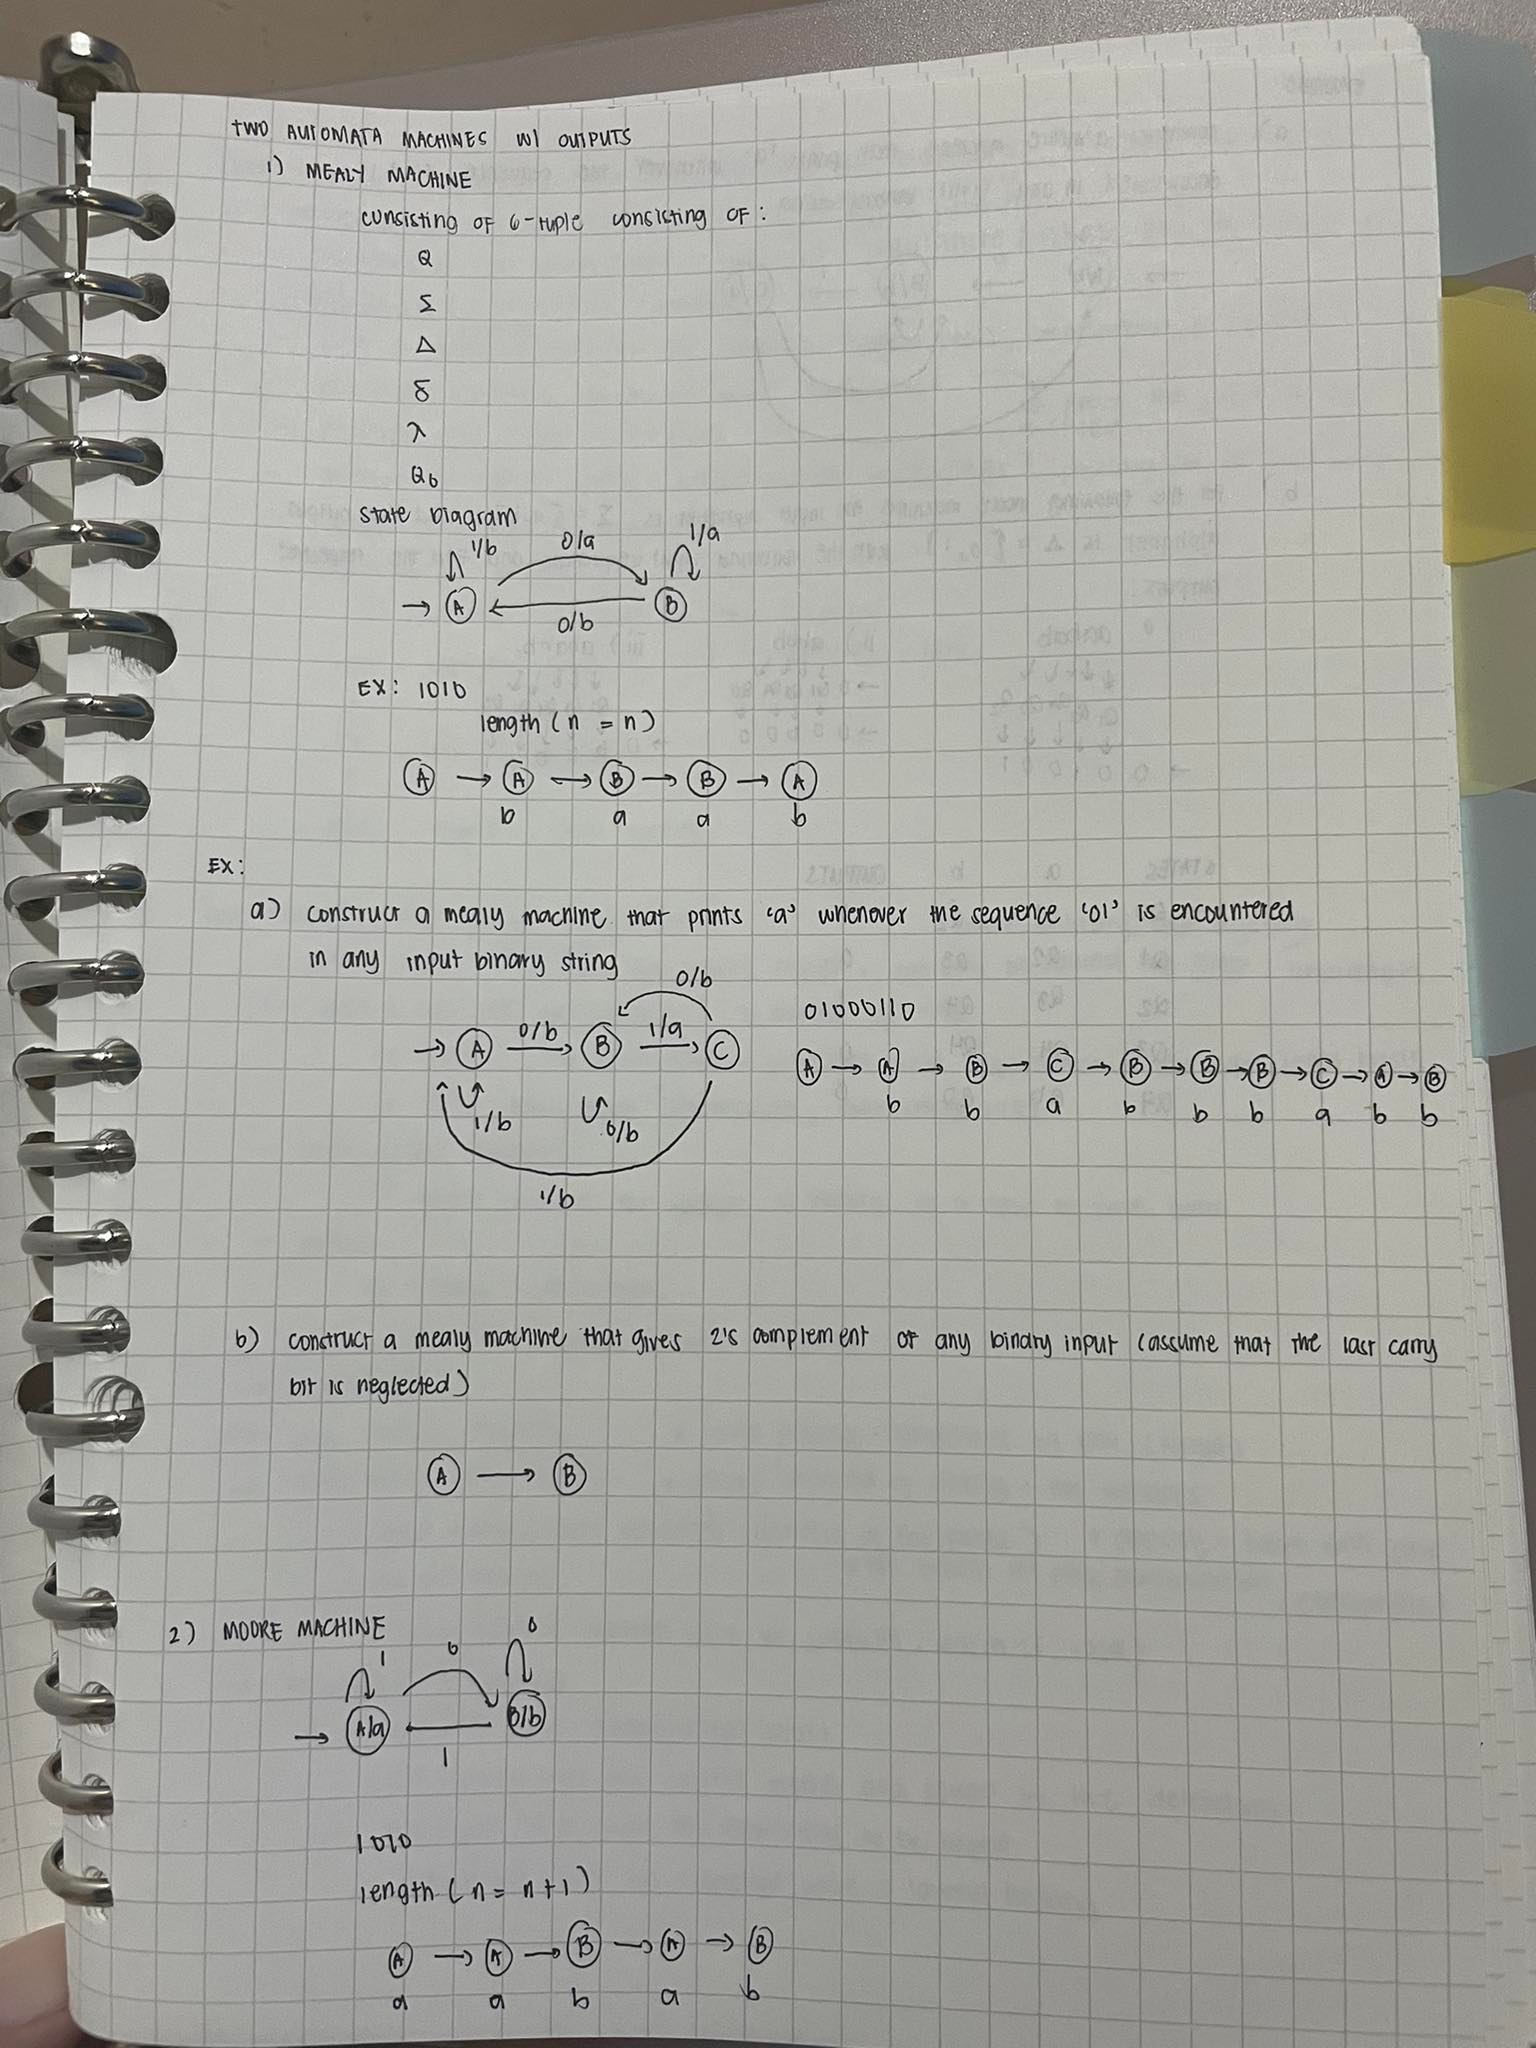 TWO AUTOMATA MACHINES W/ OUTPUTS
1) MEALY MACHINE
consisting OF 6-tuple consisting OF :
Q
Σ
Δ
δ
λ
Q0
state Diagram
1/b 0/a 1/a
→ A B
0/b
EX: 1010
length (n = n)
A → A → B → B → A
b a a b
EX:
a) construct a mealy machine that prints 'a' whenever the sequence '01' is encountered
in any input binary string
0/b
→ A 0/b B 1/a C
1/b 0/b
1/b
01000110
A → A → B → C → B → B → B → C → A → B
b b a b b b a b b
b) construct a mealy machine that gives 2's complement of any binary input (assume that the last carry
bit is neglected)
A → B
2) MOORE MACHINE
1 0 0
→ A/a B/b
1
1010
length (n = n+1)
A → A → B → A → B
a a b a b